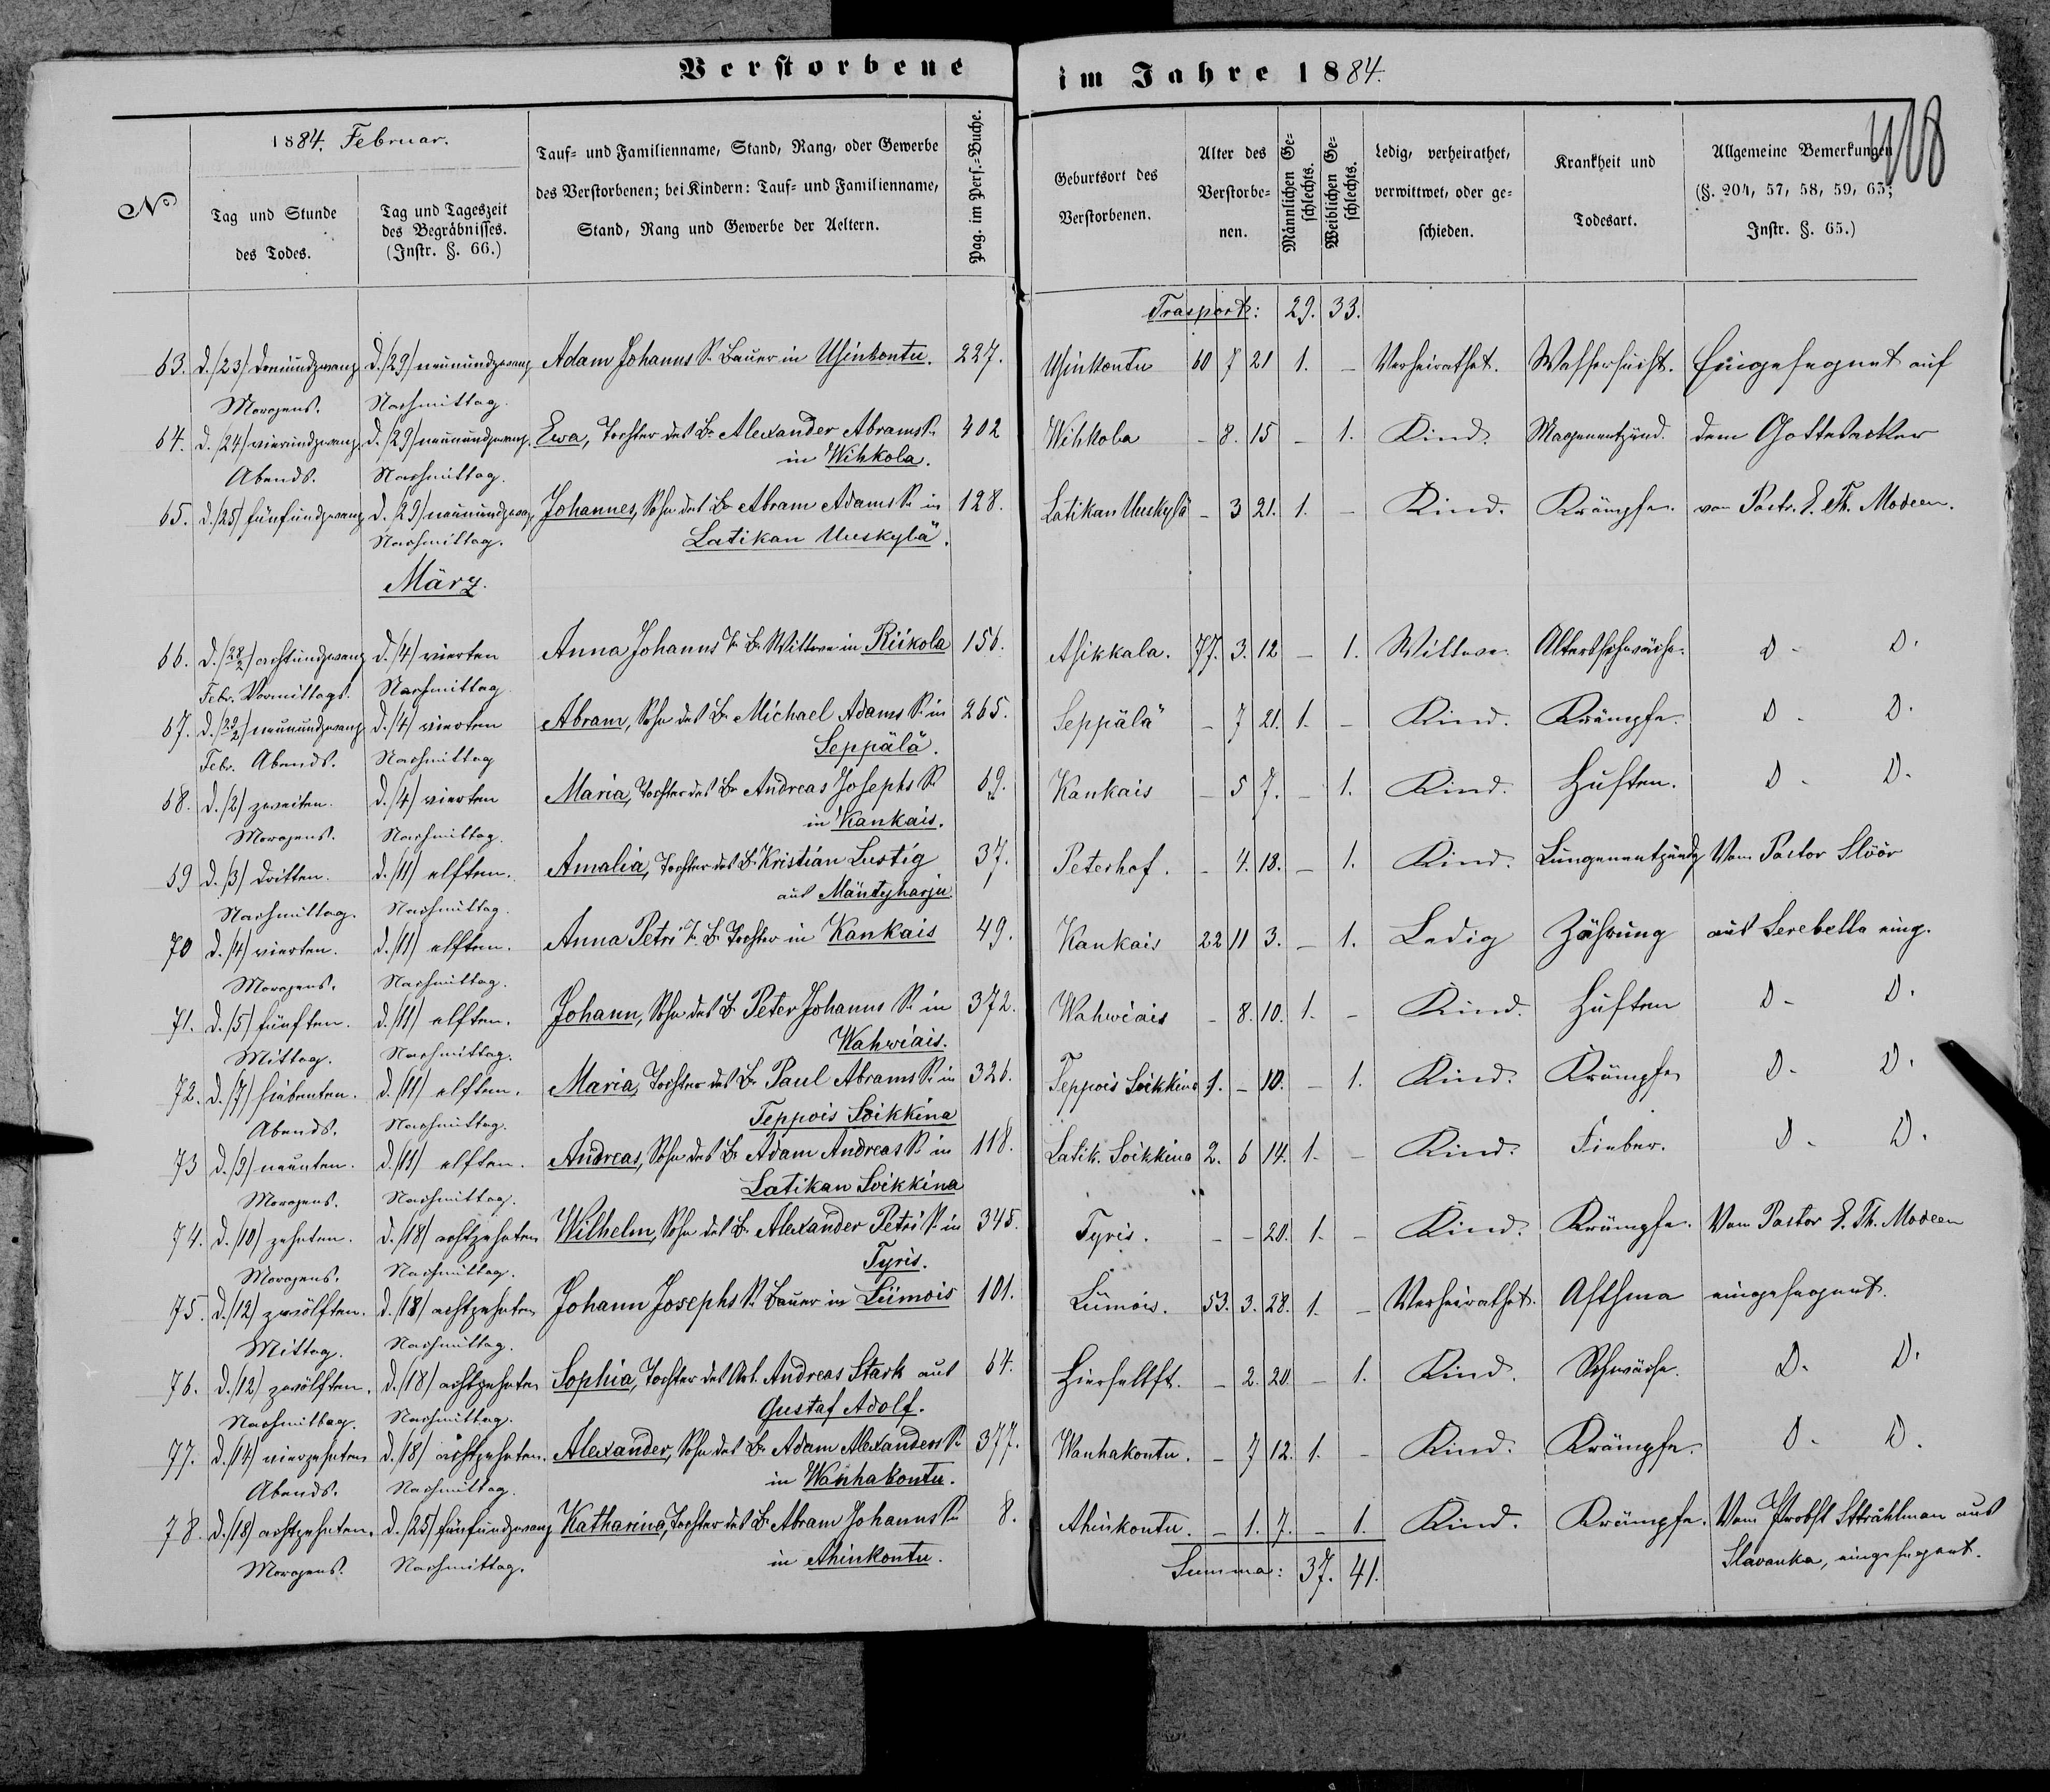 Verstorbene im Jahre 1884.
108
1884. Februar.
No
Tag und Stunde des Todes.
Tag und Tageszeit des Begräbnisses. (Instr. §. 66.)
Tauf- und Familienname, Stand, Rang, oder Gewerbe des Verstorbenen; bei Kindern: Tauf- und Familienname, Stand, Rang und Gewerbe der Aeltern.
Pag. im Pers.-Buche.
Geburtsort des Verstorbenen.
Alter des Verstorbenen.
Männlichen Geschlechts.
Weiblichen Geschlechts.
Ledig, verheirathet, verwittwet, oder geschieden.
Krankheit und Todesart.
Allgemeine Bemerkungen (§. 204, 57, 58, 59, 63; Instr. §. 65.)
Trasport: 29. 33.
63. d. (23) dreiundzwanz d. (29) neunundzwanz Adam Johanns S. Bauer in Uſinkontu. 227. Uſinkontu 60 7 21 1. – Verheirathet. Waſſerſucht. Eingeſegnet auf
Morgens. Nachmittag.
64. d. (24) vierundzwanz. d. (29) neunundzwanz. Ewa, Tochter des B. Alexander Abrams S. 402 Wihkola – 8. 15 – 1. Kind. Magenentzünd. dem Gottesacker
Abends. Nachmittag. in Wihkola.
65. d. (25) fünfundzwanz d. (29) neunundzwanz Johannes, Sohn des B. Abram Adams S. in 128. Latikan Uuskylä – 3 21. 1. – Kind. Krämpfe. von Pastr. E. Th. Modeen.
Nachmittag. Latikan Uuskylä.
März.
66. d. (28/2) achtundzwanz d. (4) vierten Anna Johanns T. B. Wittwe in Riikola 156. Aſikkala. 77. 3. 12 – 1. Wittwe. Altersſchwäche. D – D.
Febr. Vormittags. Nachmittag
67. d. (29/2) neunundzwanz d. (4) vierten Abram, Sohn des B. Michael Adams S. in 265. Seppälä – 7 21. 1. – Kind. Krämpfe. D – D.
Febr. Abends. Nachmittag Seppälä.
68. d. (2) zweiten. d. (4) vierten Maria, Tochter des B. Andreas Joſephs S. 69. Kankais – 5 7. – 1. Kind. Huſten. D – D.
Morgens. Nachmittag. in Kankais.
69 d. (3) dritten. d. (11) elften. Amalia, Tochter des B. Kristian Lustig 37. Peterhof. – 4. 18. – 1. Kind. Lungenentzündg Vom Pastor Slöör
Nachmittag. Nachmittag. aus Mäntyharju
70 d. (4) vierten. d. (11) elften. Anna Petri T. B. Tochter in Kankais 49. Kankais 22 11 3. – 1. Ledig Zährung aus Serebetta eing.
Morgens. Nachmittag.
71. d. (5) fünften. d. (11) elften. Johann, Sohn des B. Peter Johanns S. in 372. Wahwiais – 8. 10. 1. – Kind. Huſten D – D.
Mittag. Nachmittag. Wahwiais.
72. d. (7) ſiebenten. d. (11) elften. Maria, Tochter des B. Paul Abrams S. in 326. Teppois Soikkina 1. – 10. – 1. Kind. Krämpfe D – D.
Abends. Nachmittag. Teppois Soikkina
73 d. (9) neunten. d. (11) elften. Andreas, Sohn des B. Adam Andreas S. in 118. Latik. Soikkina 2. 6 14. 1. – Kind. Fieber. D – D.
Morgens. Nachmittag. Latikan Soikkina
74. d. (10) zehnten. d. (18) achtzehnten Wilhelm, Sohn des B. Alexander Petri S. in 345. Tyris. – – 20. 1. – Kind. Krämpfe. Vom Pastor E. Th. Modeen
Morgens. Nachmittag. Tyris.
75. d. (12) zwölften. d. (18) achtzehnten Johann Josephs S. Bauer in Liimois 101. Liimois. 53. 3. 28. 1. – Verheirathet. Aſthma eingeſegnet.
Mittag. Nachmittag.
76. d. (12) zwölften. d. (18) achtzehnten Sophia, Tochter des Arb. Andreas Stark aus 64. Hierſelbſt. – 2. 20. – 1. Kind. Schwäche. D – D.
Nachmittag. Nachmittag. Gustaf Adolf.
77. d. (14) vierzehnten d. (18) achtzehnten. Alexander, Sohn des B. Adam Alexanders S. 377. Wanhakontu. – 7 12. 1. – Kind. Krämpfe. D – D.
Abends. Nachmittag. in Wanhakontu.
78. d. (18) achtzehnten. d. (25) fünfundzwanz Katharina, Tochter des B. Abram Johanns S. 8. Ahinkontu. – 1. 7. – 1. Kind. Krämpfe. Vom Probſt Stråhlman aus
Morgens. Nachmittag. in Ahinkontu. Summa: 37. 41. Slavanka, eingeſegnet.